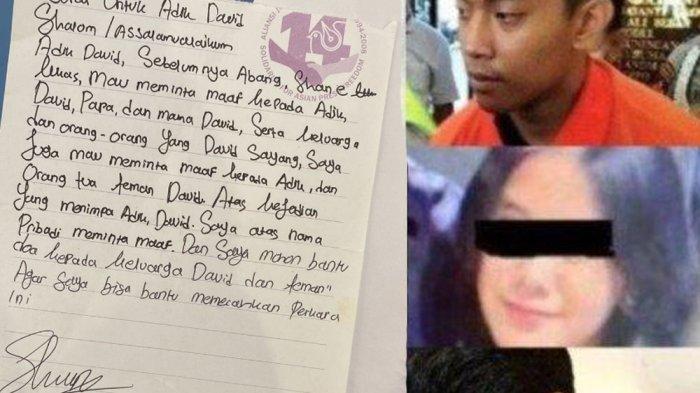 Untuk Adik David
Shalom / Assalamualaikum
Adik David, Sebelumnya Abang, Shane
Lukas, Mau meminta maaf kepada Adik
David, Papa, dan mama David, Serta keluarga
dan orang-orang Yang David Sayang, Saya
Juga mau meminta maaf kepada Adik, dan
Orang tua teman David. Atas kejadian
Yang menimpa Adik, David. Saya atas nama
Pribadi meminta maaf. Dan Saya mohon bantu
doa kepada keluarga David dan teman"
Agar Saya bisa bantu memecahkan Perkara
Ini